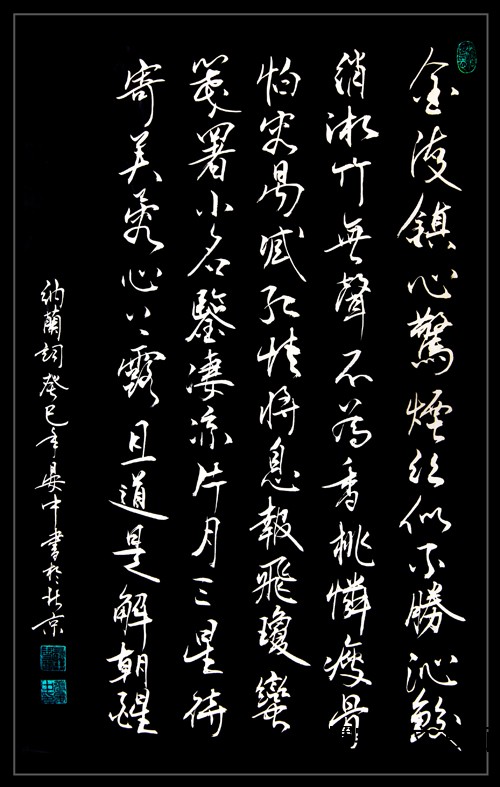 金液鎮心驚煙絲似不勝沁鮫
綃湘竹無聲不為香桃憐瘦骨
怕容易減紅情將息報飛瓊蠻
箋署小名鑒淒涼片月三星待
寄芙蓉心上露且道是解朝酲
納蘭詞癸巳年晏中書於北京